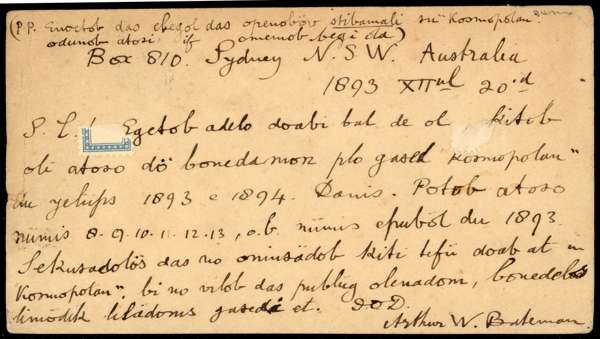 (P.P. Enoctob das elegol das openobōv stibamali su "Kosmopolan"
odunob atosi, if omemob begi ola)
Box 810. Sydney N.S.W. Australia
1893 XIIul 20id
S. L.! Egetob adelo doabi bal de ol kitob
oli atoso dö bonedam oz plo gased "Kosmopolan"
in yelüps 1893 e 1894. Danis. Potob atoso
nümis 8. 9. 10. 11. 12. 13, o.b. nümis epuböl du 1893
Sekusadolös das no oniusädob kiti tefü doab at in
"Kosmopolan", bi no vilob das publug olenadom, bonedelos
limödik lisädoms gasedi et. DOD.
Arthur W. Bateman